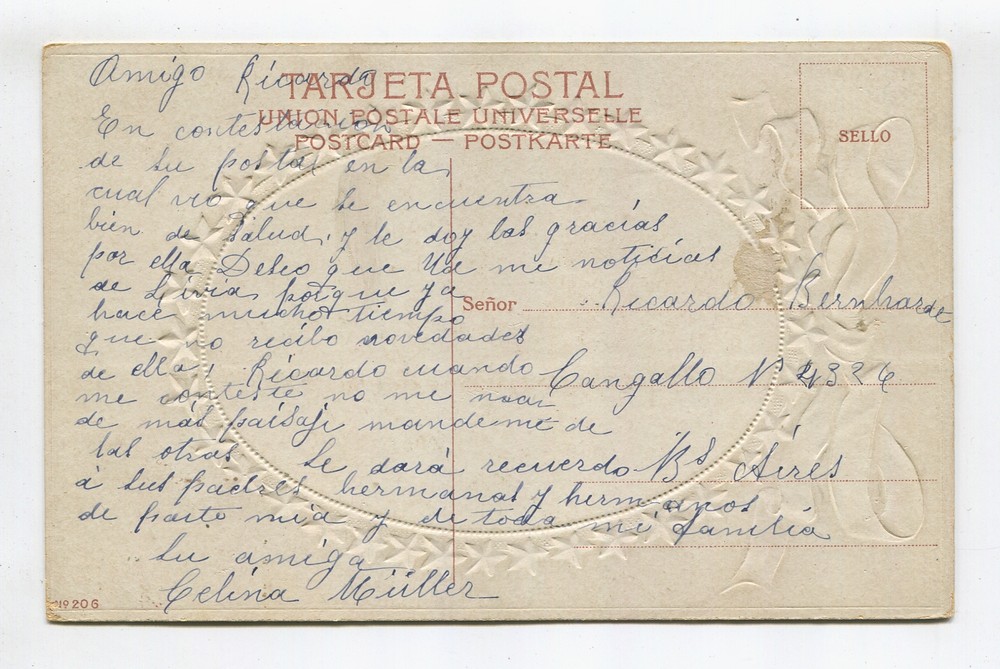 TARJETA POSTAL
UNION POSTALE UNIVERSELLE
POSTCARD — POSTKARTE
SELLO
Amigo Ricardo
En contestacion
de su postal en la
cual veo que se encuentra
bien de Salud, y le doy las gracias
por ella Deseo que Ud me noticias
de Livia, porque ya
hace mucho tiempo
que no recibo novedades
de ella, Ricardo cuando
me conteste no me
de más paisaji mandeme de
las otras Le dará recuerdo
á sus padres hermanas y hermanos
de parte mia y de toda mi familia
Su amiga
Celina Müller
Señor Ricardo Bernharde
Cangallo N 4326
Bs Aires
Nº 206